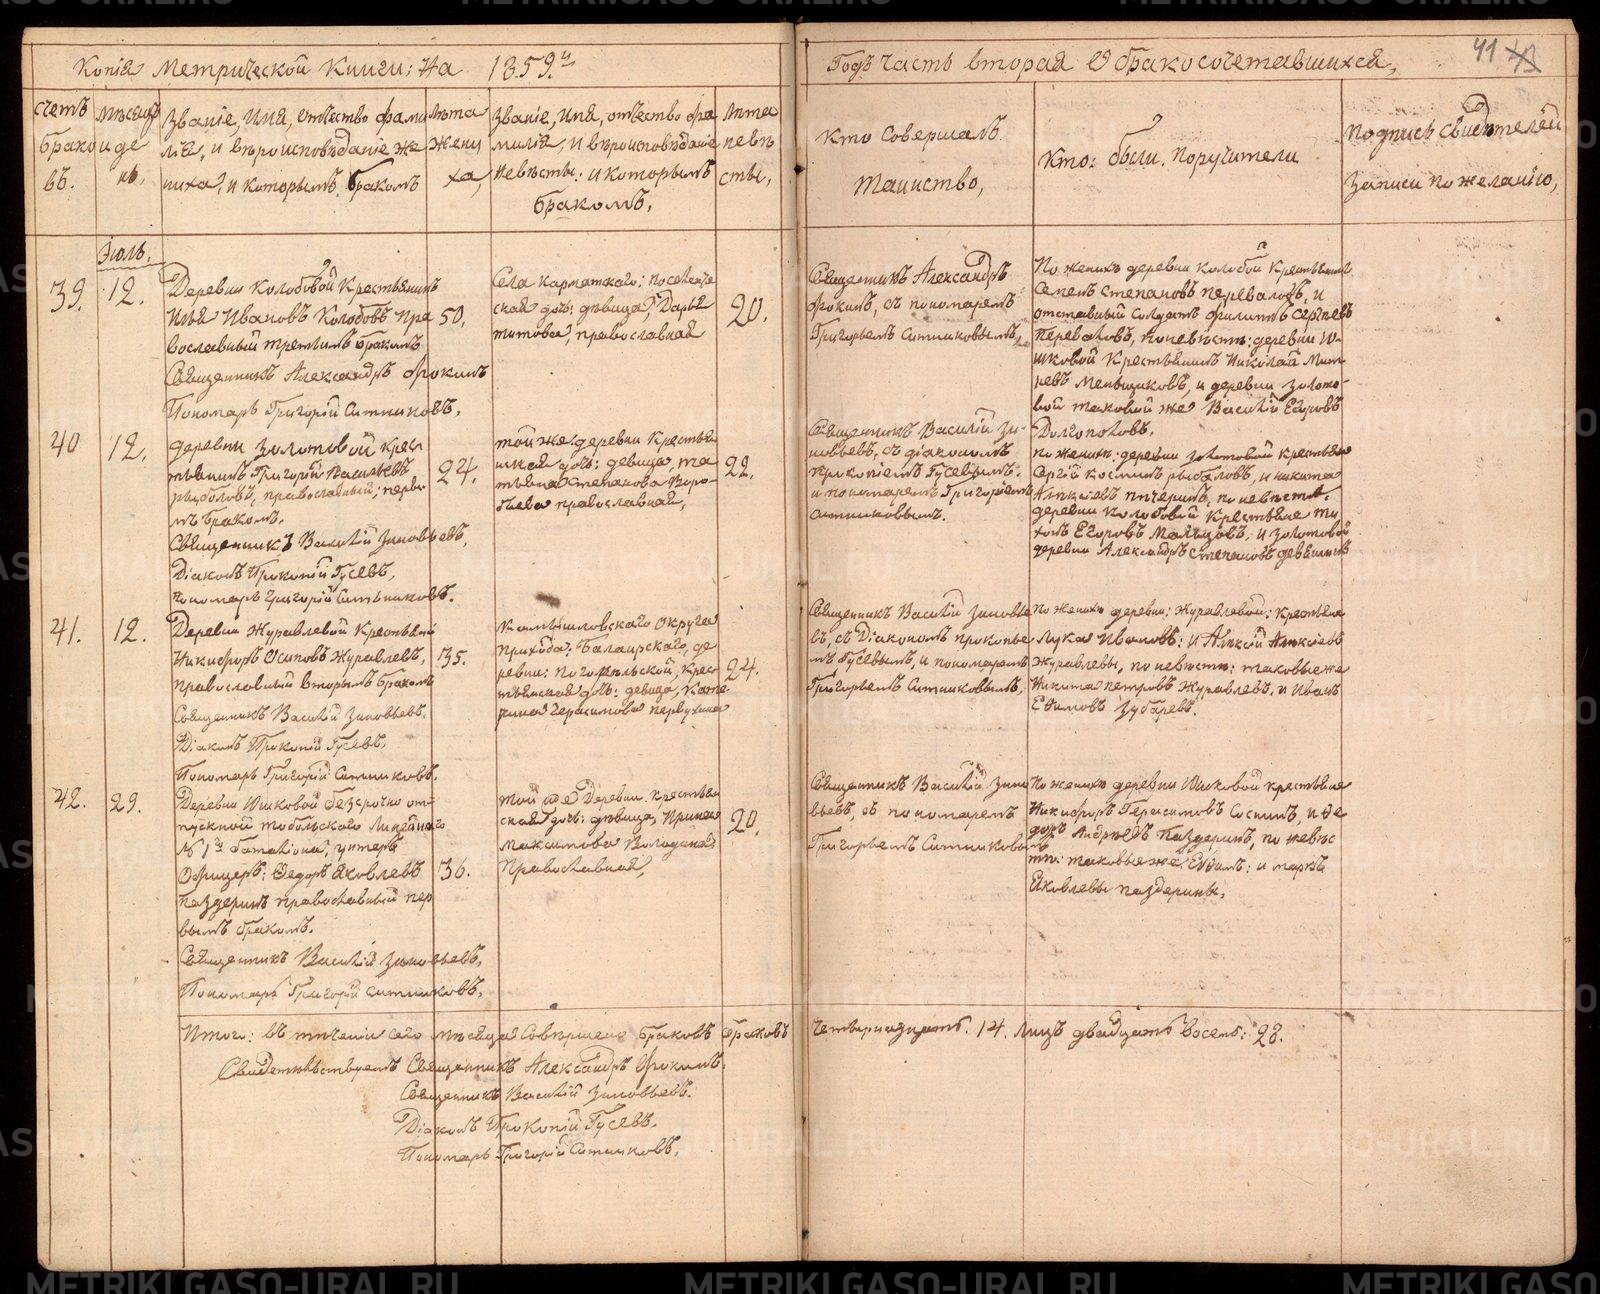 Копія Метрической Книги: На 1859й
Годъ Часть вторая О бракосочетавшихся,
41
счетъ браковъ.
мѣсяцъ и день,
Званіе, Имя, отчество фамилія, и вѣроисповѣданіе жениха, и которымъ бракомъ
Лѣта жениха,
Званіе, Имя, отчество фамилія, и вѣроисповѣданіе невѣсты: и которымъ бракомъ,
Лѣта невѣсты,
Кто Совершалъ
таинство,
Кто: были поручители
Подпись свидѣтелей
Записи по желанію,
Іюль.
39. 12.
Деревни Колобовой Крестьянинъ
Илья Ивановъ Колобовъ пра
вославный третьимъ бракомъ
Священникъ Александръ Фокинъ
Пономарь Григорій Ситниковъ.
50.
Села
ская дочь: дѣвица, Дарья
Титова, православная
20.
Священникъ Александръ
Фокинъ, съ пономаремъ
Григорьемъ Ситниковымъ,
По женихѣ деревни Колобой Крестьянинъ
Семенъ Степановъ Переваловъ, и
отставный Солдатъ Филипъ Сергѣевъ
Переваловъ, по невѣстѣ: деревни И
шковой Крестьянинъ Николай Мит
ревъ Меньщиковъ, и деревни Золото-
вой таковой же Василій Егоровъ
Долгополовъ.
40 12.
деревни Золотовой крес
тьянинъ Григорій Васильевъ
рыболовъ, православный, первы
мъ бракомъ.
Священникъ Василій Зиновьевъ,
Діаконъ Прокопій Гусевъ,
пономарь Григорій Ситниковъ.
24.
той же деревни Крестья
нская дочь: девица, Та
тьяна Степанова Воро-
бьева православная,
22.
Священникъ Василій Зи-
новьевъ, съ діакономъ
Прокопіемъ Гусевымъ.
и пономаремъ Григоріемъ
Ситниковымъ.
по женихѣ: деревни золотовой крестьяне
Сергій Косминъ рыболовъ, и никита
Алексѣевъ Печеринъ, по невѣстѣ.
деревни Колобовой Крестьяне Ти
хонъ Егоровъ Мальцовъ, и золотовой
деревни Александръ Степановъ
41. 12.
Деревни Журавлевой Крестьянинъ
Никифоръ Осиповъ Журавлевъ,
православный вторымъ бракомъ
Священникъ Василій Зиновьевъ.
Діаконъ Прокопій Гусевъ,
Пономарь Григорій Ситниковъ.
35.
Камышловскаго округа
прихода: Балаирскаго, де
ревни: крес
тьянская дочь: девица, Кате
рина Герасимова Первухина
24.
Священникъ Василій Зиновье
въ, съ Діакономъ прокопье
мъ Гусевымъ, и пономаремъ
Григорьемъ Ситниковымъ,
По женихѣ деревни: Журавлевой: Крестьяне
Лука Ивановъ: и Алексѣй Алексѣевъ
Журавлевы, по невѣстѣ: таковые же
Никита Петровъ Журавлевъ, и Иванъ
Ефимовъ Зубаревъ.
42. 29.
Деревни Ишковой безсрочно от-
пускной тобольскаго Линейнаго
№ 1го баталіона, унтеръ
Офицеръ: Федоръ Яковлевъ
Паздеринъ православный пер
вымъ бракомъ.
Священникъ Василій Зиновьевъ,
Пономарь Григорій Ситниковъ,
36.
той же Деревни крестьян
ская дочь: дѣвица, Ирина
Максимова Володина
Православная,
20.
Священникъ Василій Зино
вьевъ, съ пономаремъ
Григорьемъ Ситниковымъ
По женихѣ деревни Ишковой крестьяне
Никифоръ Герасимовъ Соснинъ, и Фе
доръ Андреевъ Паздеринъ, по невѣс
тѣ: таковые же Ефимъ: и марко
Яковлевы паздерины,
Итого: въ теченіи сего мѣсяца Совершено браковъ браковъ четырнадцать. 14. Лицъ двадцать восемь: 28.
Свидетельствуемъ Священникъ Александръ Фокинъ.
Священникъ Василій Зиновьевъ.
Діаконъ Прокопій Гусевъ.
Пономарь Григорій Ситниковъ,
METRIKI.GASO-URAL.RU